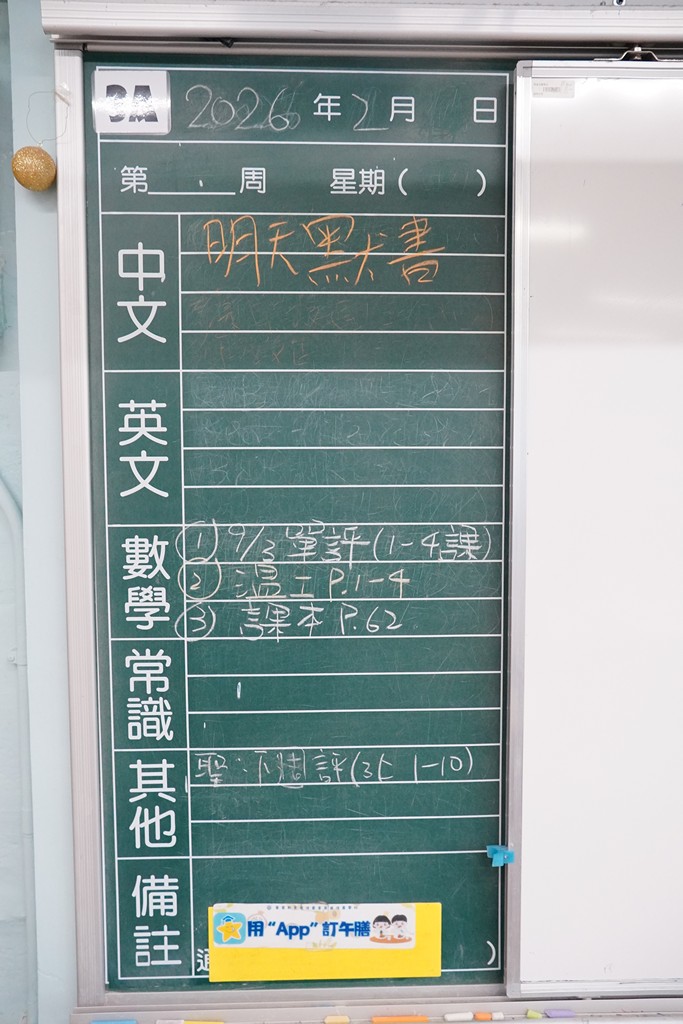 3A 2026年2月 日
第 周 星期( )
中文
明天默書
英文
數學
① 9/3 單評(1-4課)
② 溫工 P.1-4
③ 課本 P.62
常識
其他
聖：下週評(3上 1-10)
備註
用“App”訂午膳
通 )